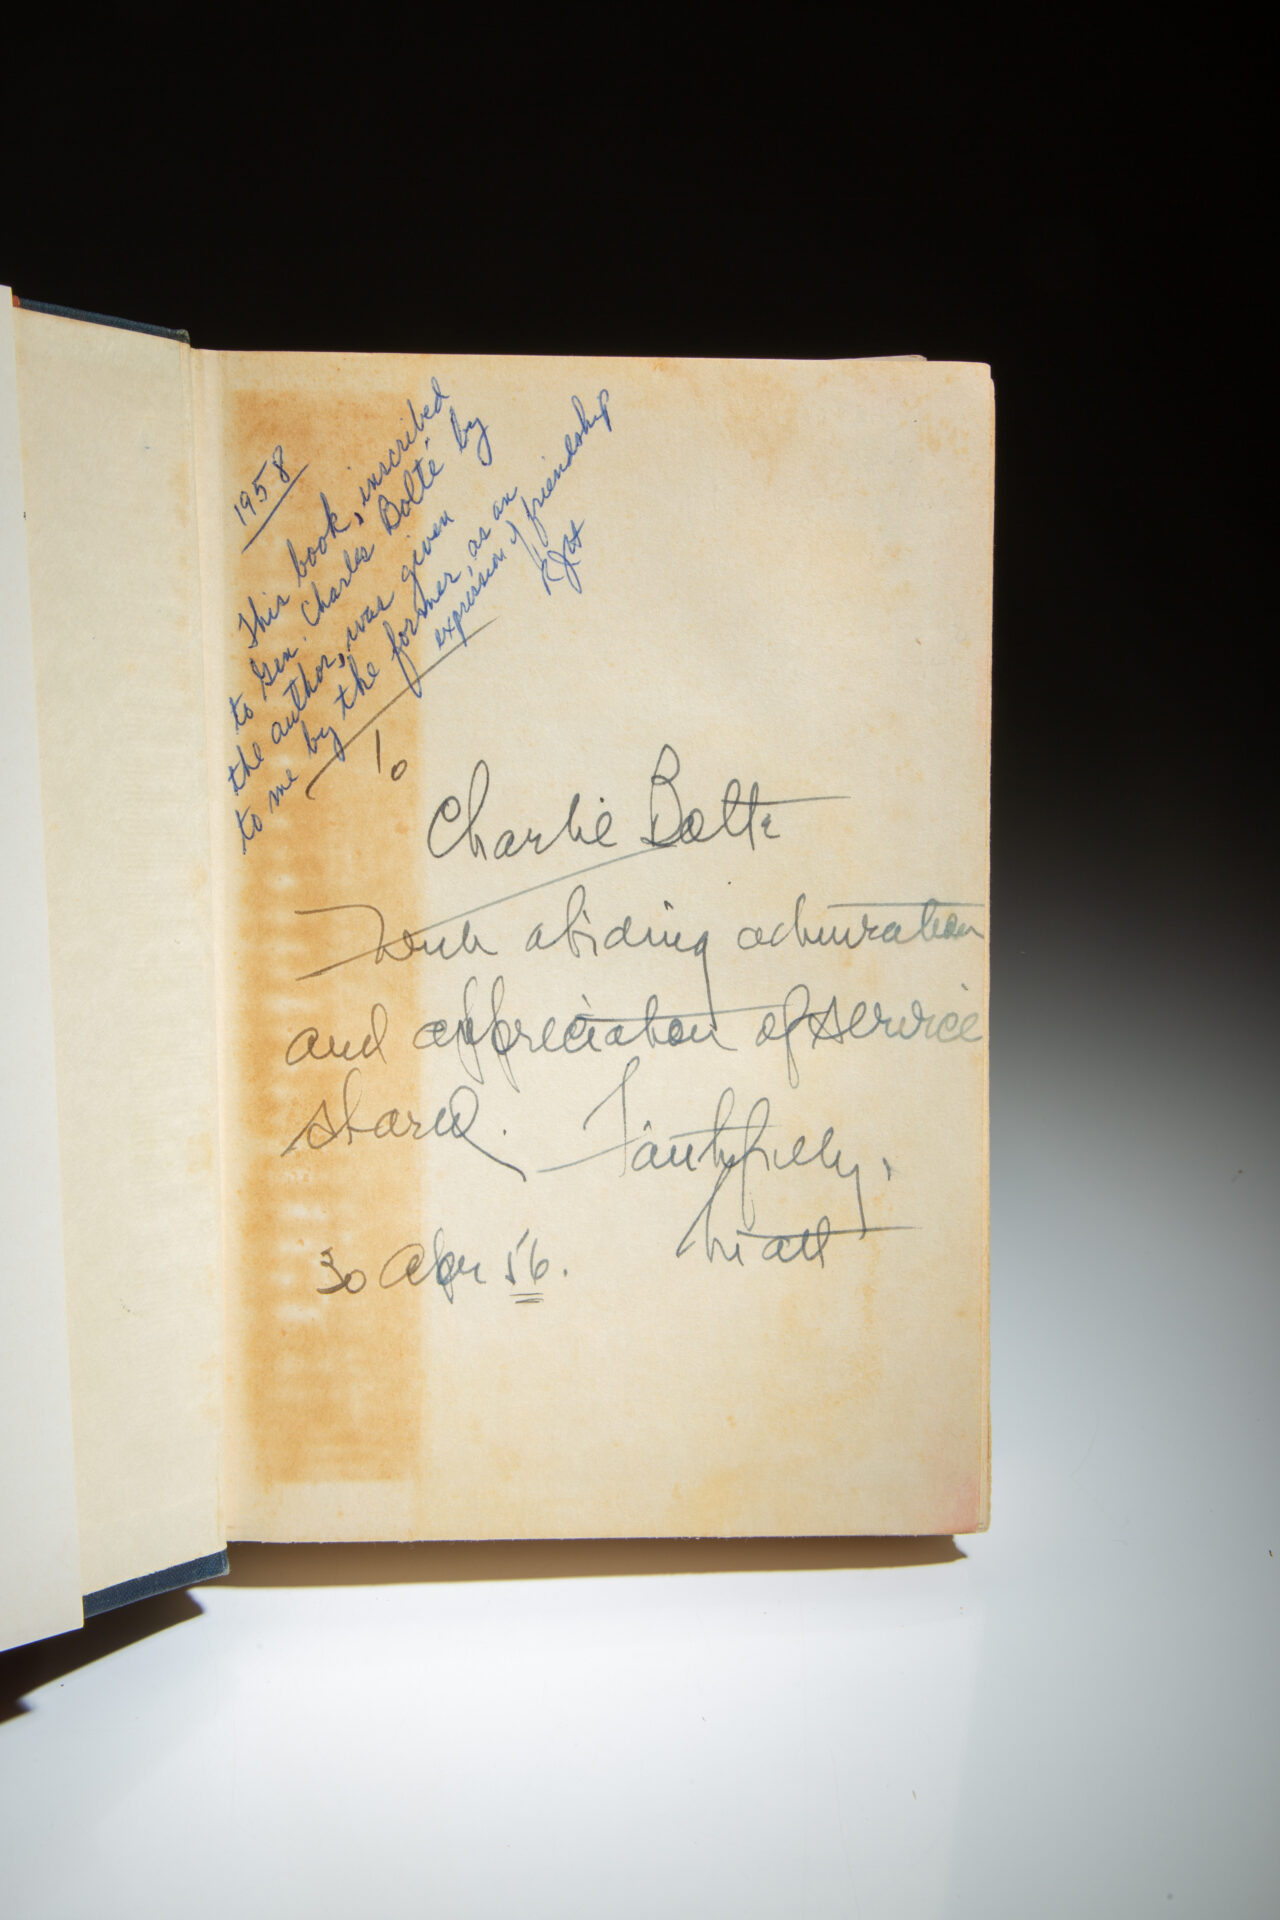 1958
This book, inscribed
to Gen. Charles Bolté by
the author, was given
to me by the former, as an
expression of friendship
To
Charlie Bolte
With abiding admiration
and appreciation of service
shared. Faithfully,
30 Apr 56.